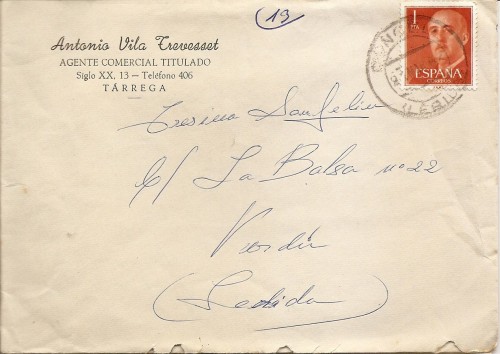 (19)
Antonio Vila Trevesset
AGENTE COMERCIAL TITULADO
Siglo XX, 13 — Teléfono 406
TÁRREGA
1
PTA
ESPAÑA
CORREOS
Teresina Sanfeliu
c/ La Balsa nº 22
Verdú
(Lerida)